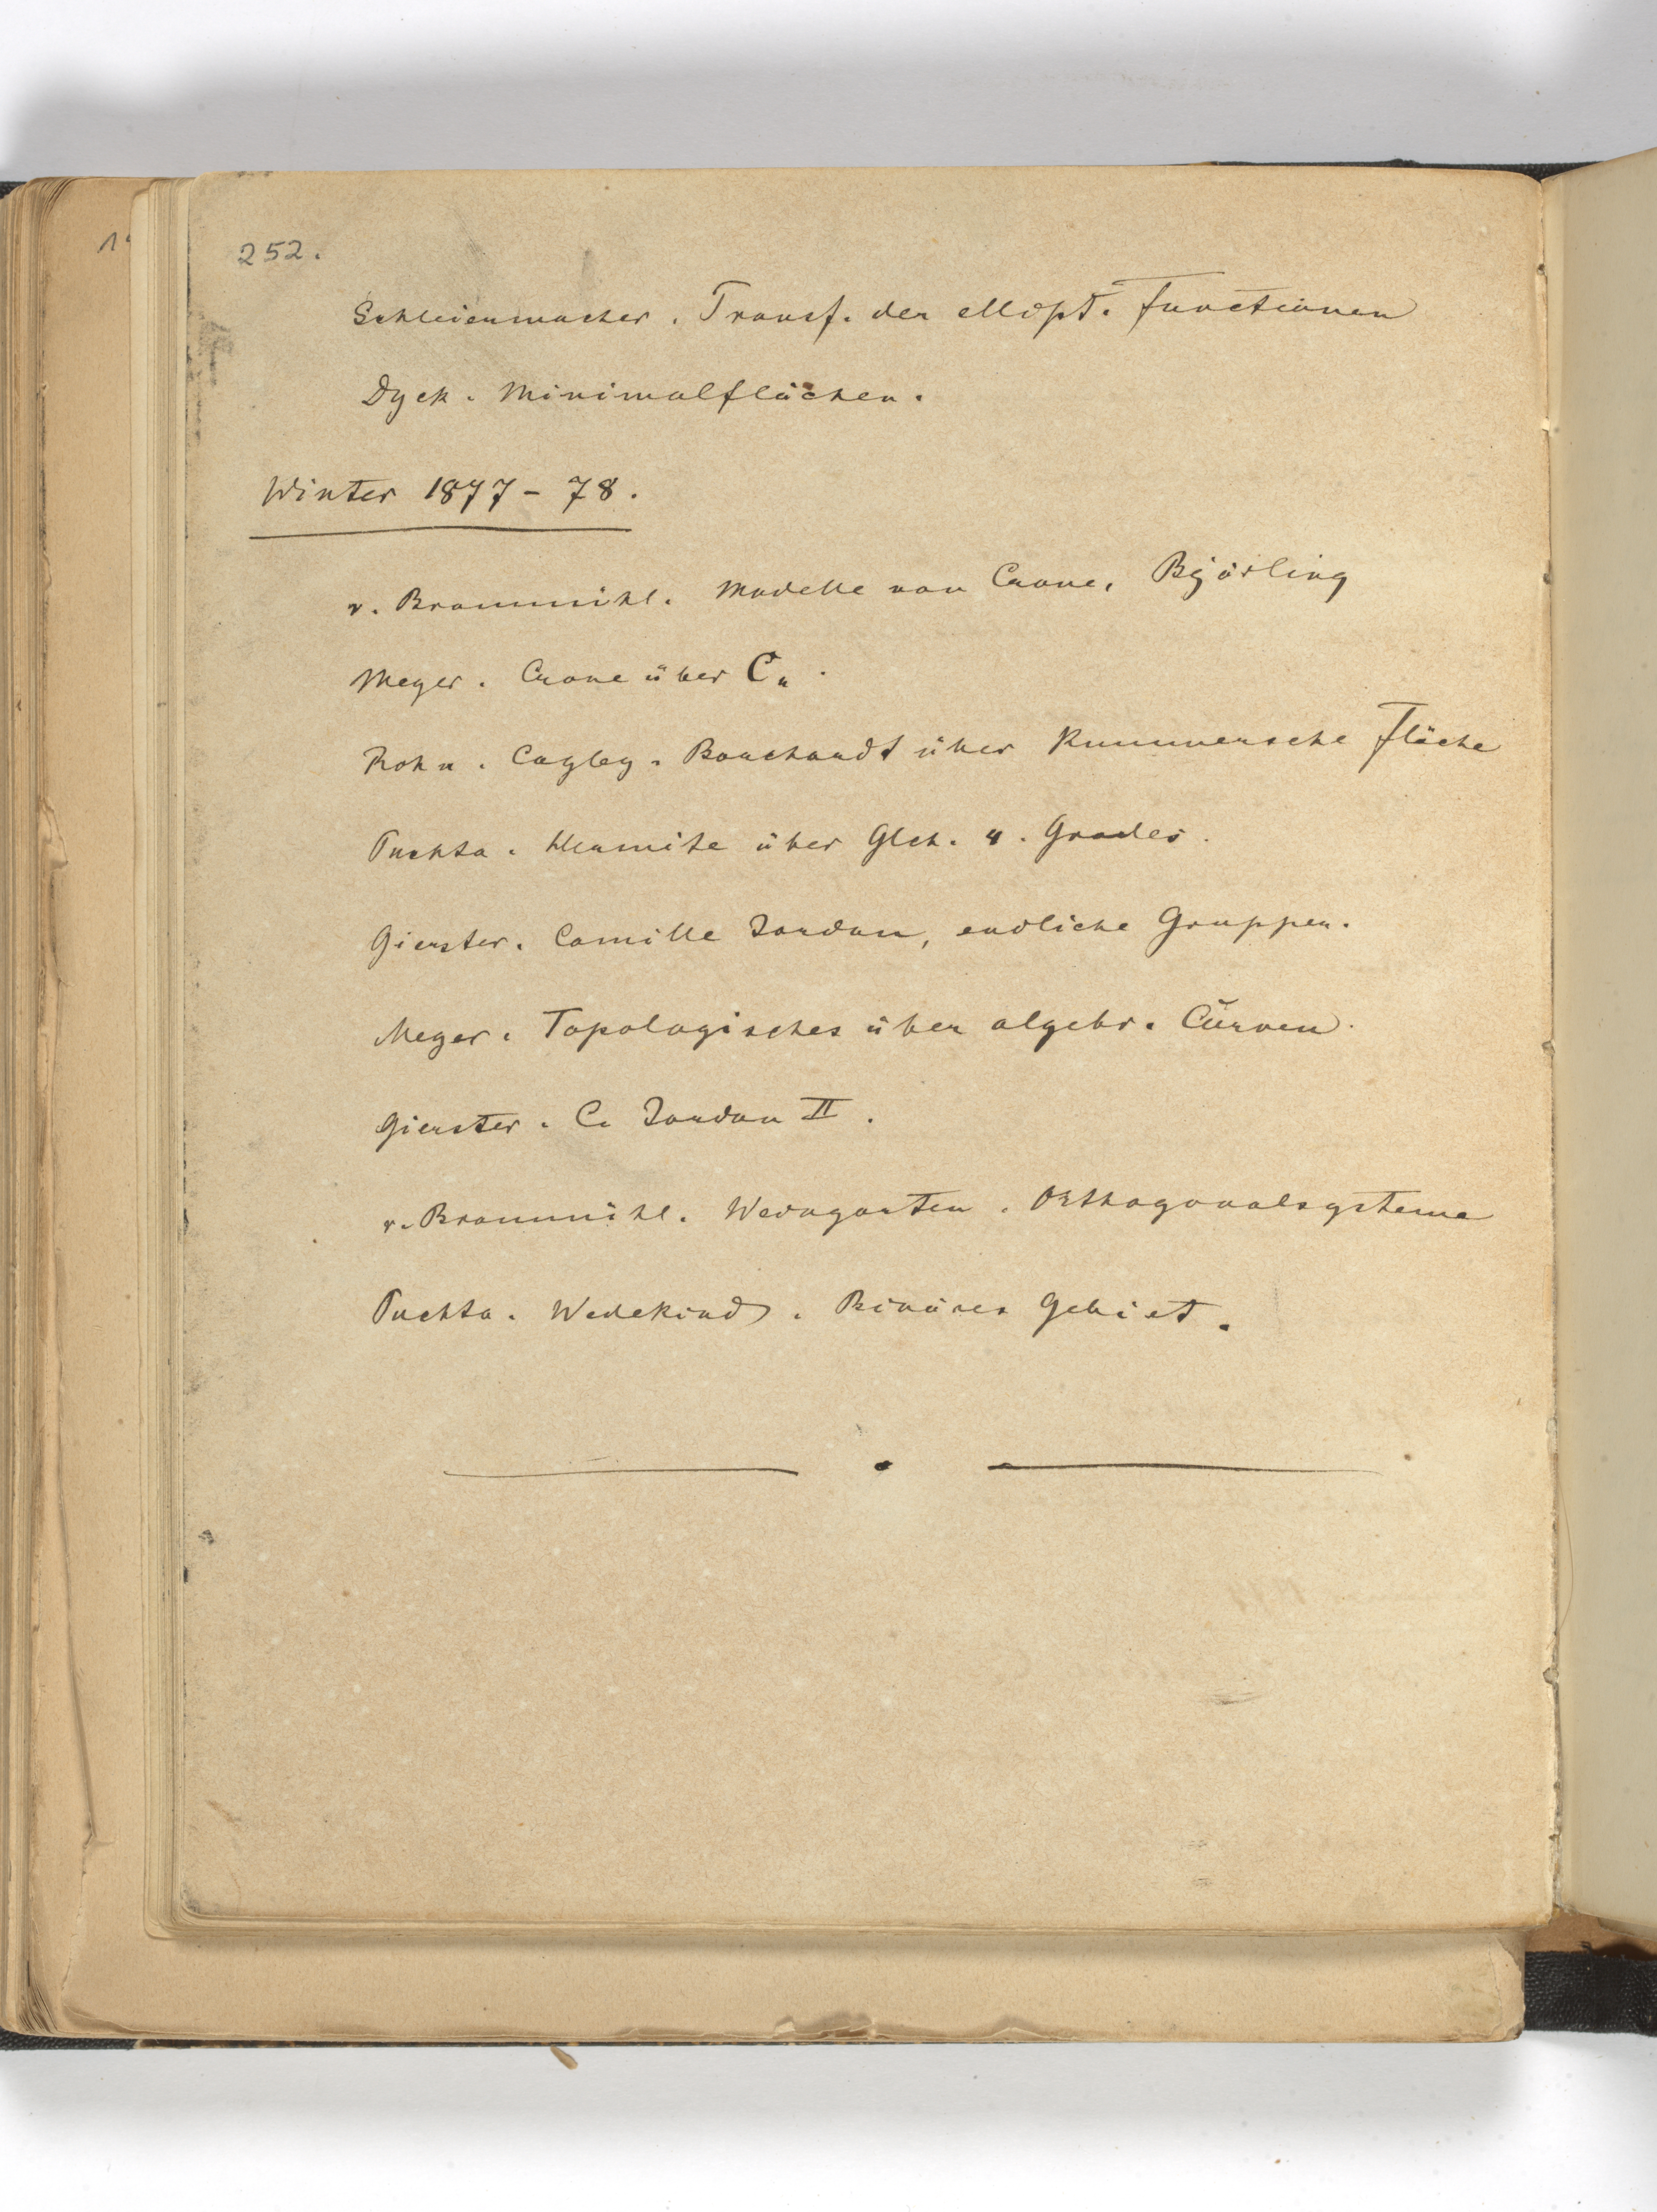 252.
Schleiermacher. Transf. der ellipt. Functionen
Dyck. Minimalflächen.
Winter 1877-78.
v. Braunmühl. Modelle von Crone, Björling
Meyer. Crone über C₄.
Rohn. Cayley. Borchardt über Kummersche Fläche
Puchta. Hermite über Glch. 4. Grades.
Gierster. Camille Jordan, endliche Gruppen.
Meyer. Topologisches über algebr. Curven.
Gierster. C. Jordan II.
v. Braunmühl. Weingarten. Orthogonalsysteme
Puchta. Wedekind. Binäres Gebiet.